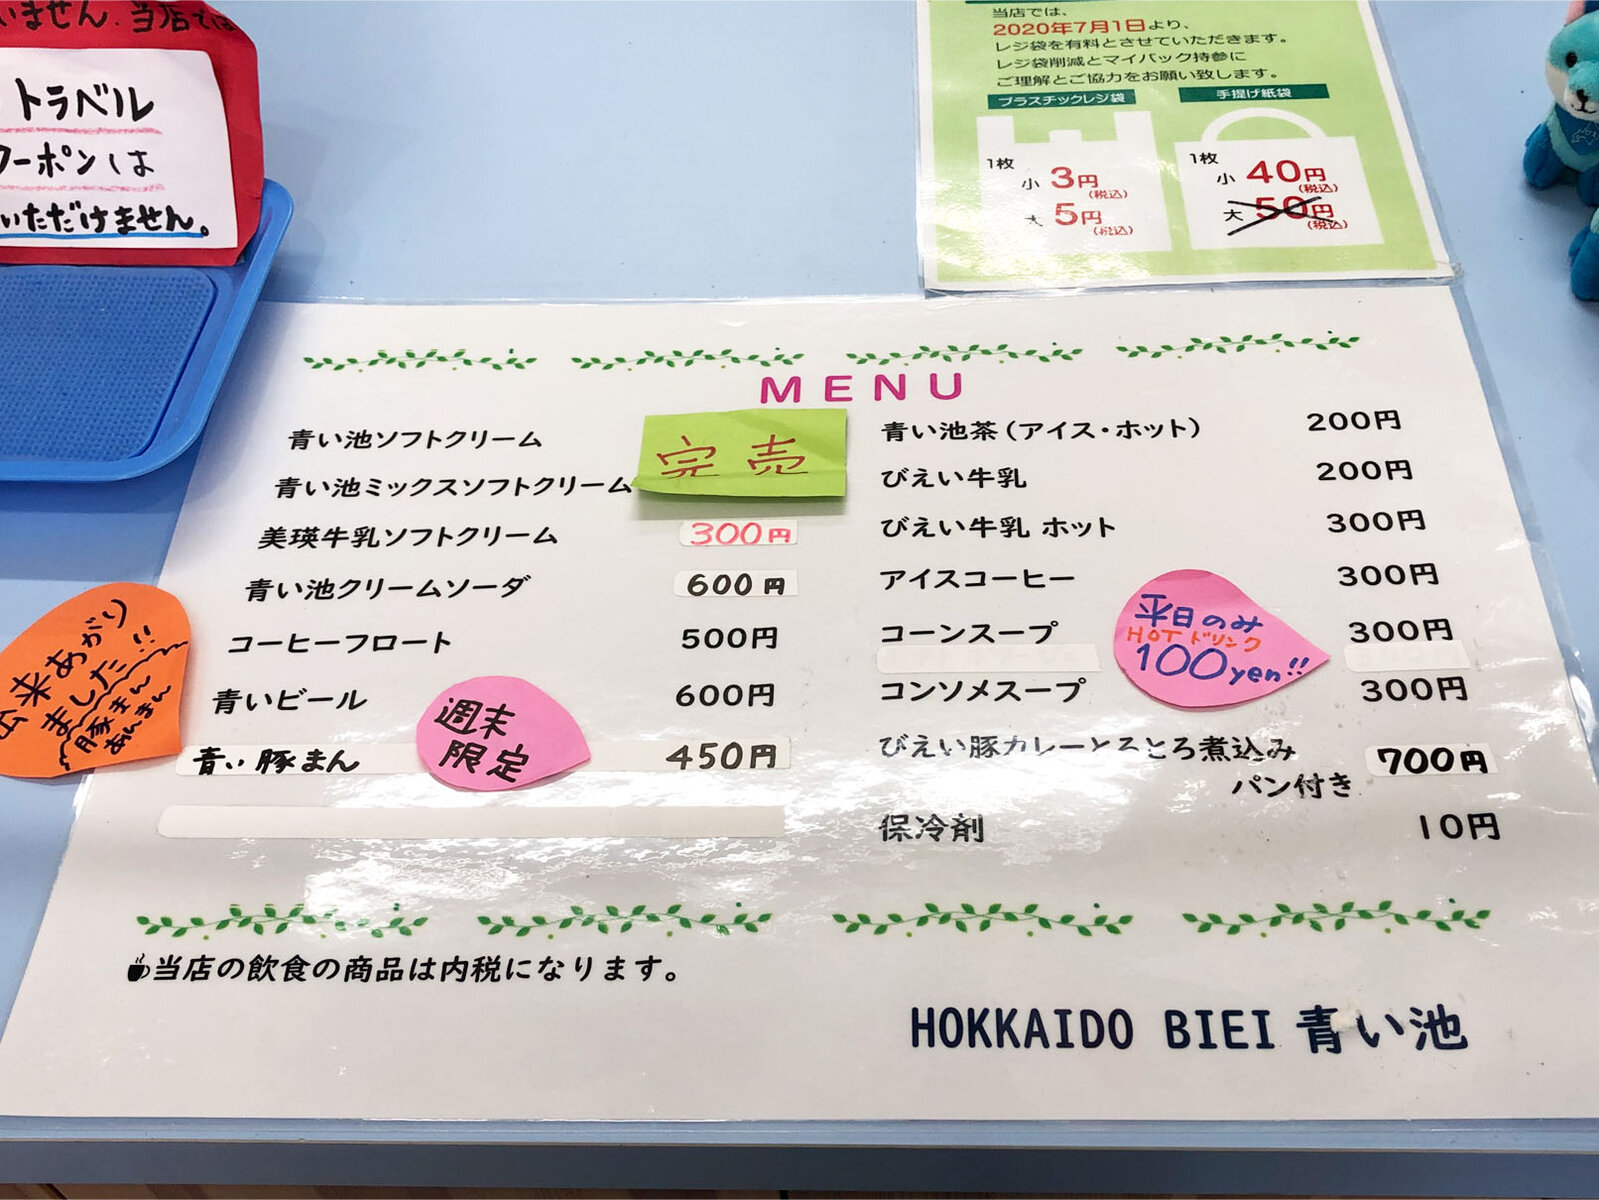 いません.当店では
トラベル
クーポンは
いただけません。
当店では、
2020年7月1日より、
レジ袋を有料とさせていただきます。
レジ袋削減とマイバック持参に
ご理解とご協力をお願い致します。
プラスチックレジ袋
1枚
小 3円
(税込)
大 5円
(税込)
手提げ紙袋
1枚
小 40円
(税込)
大 50円
(税込)
MENU
青い池ソフトクリーム
青い池ミックスソフトクリーム
完売
美瑛牛乳ソフトクリーム 300円
青い池クリームソーダ 600円
コーヒーフロート 500円
青いビール 600円
青い豚まん 450円
週末
限定
出来あがり
ました!!
豚まん
あんまん
青い池茶(アイス・ホット) 200円
びえい牛乳 200円
びえい牛乳 ホット 300円
アイスコーヒー 300円
コーンスープ 300円
コンソメスープ 300円
平日のみ
HOTドリンク
100yen!!
びえい豚カレーとろとろ煮込み 700円
パン付き
保冷剤 10円
当店の飲食の商品は内税になります。
HOKKAIDO BIEI 青い池